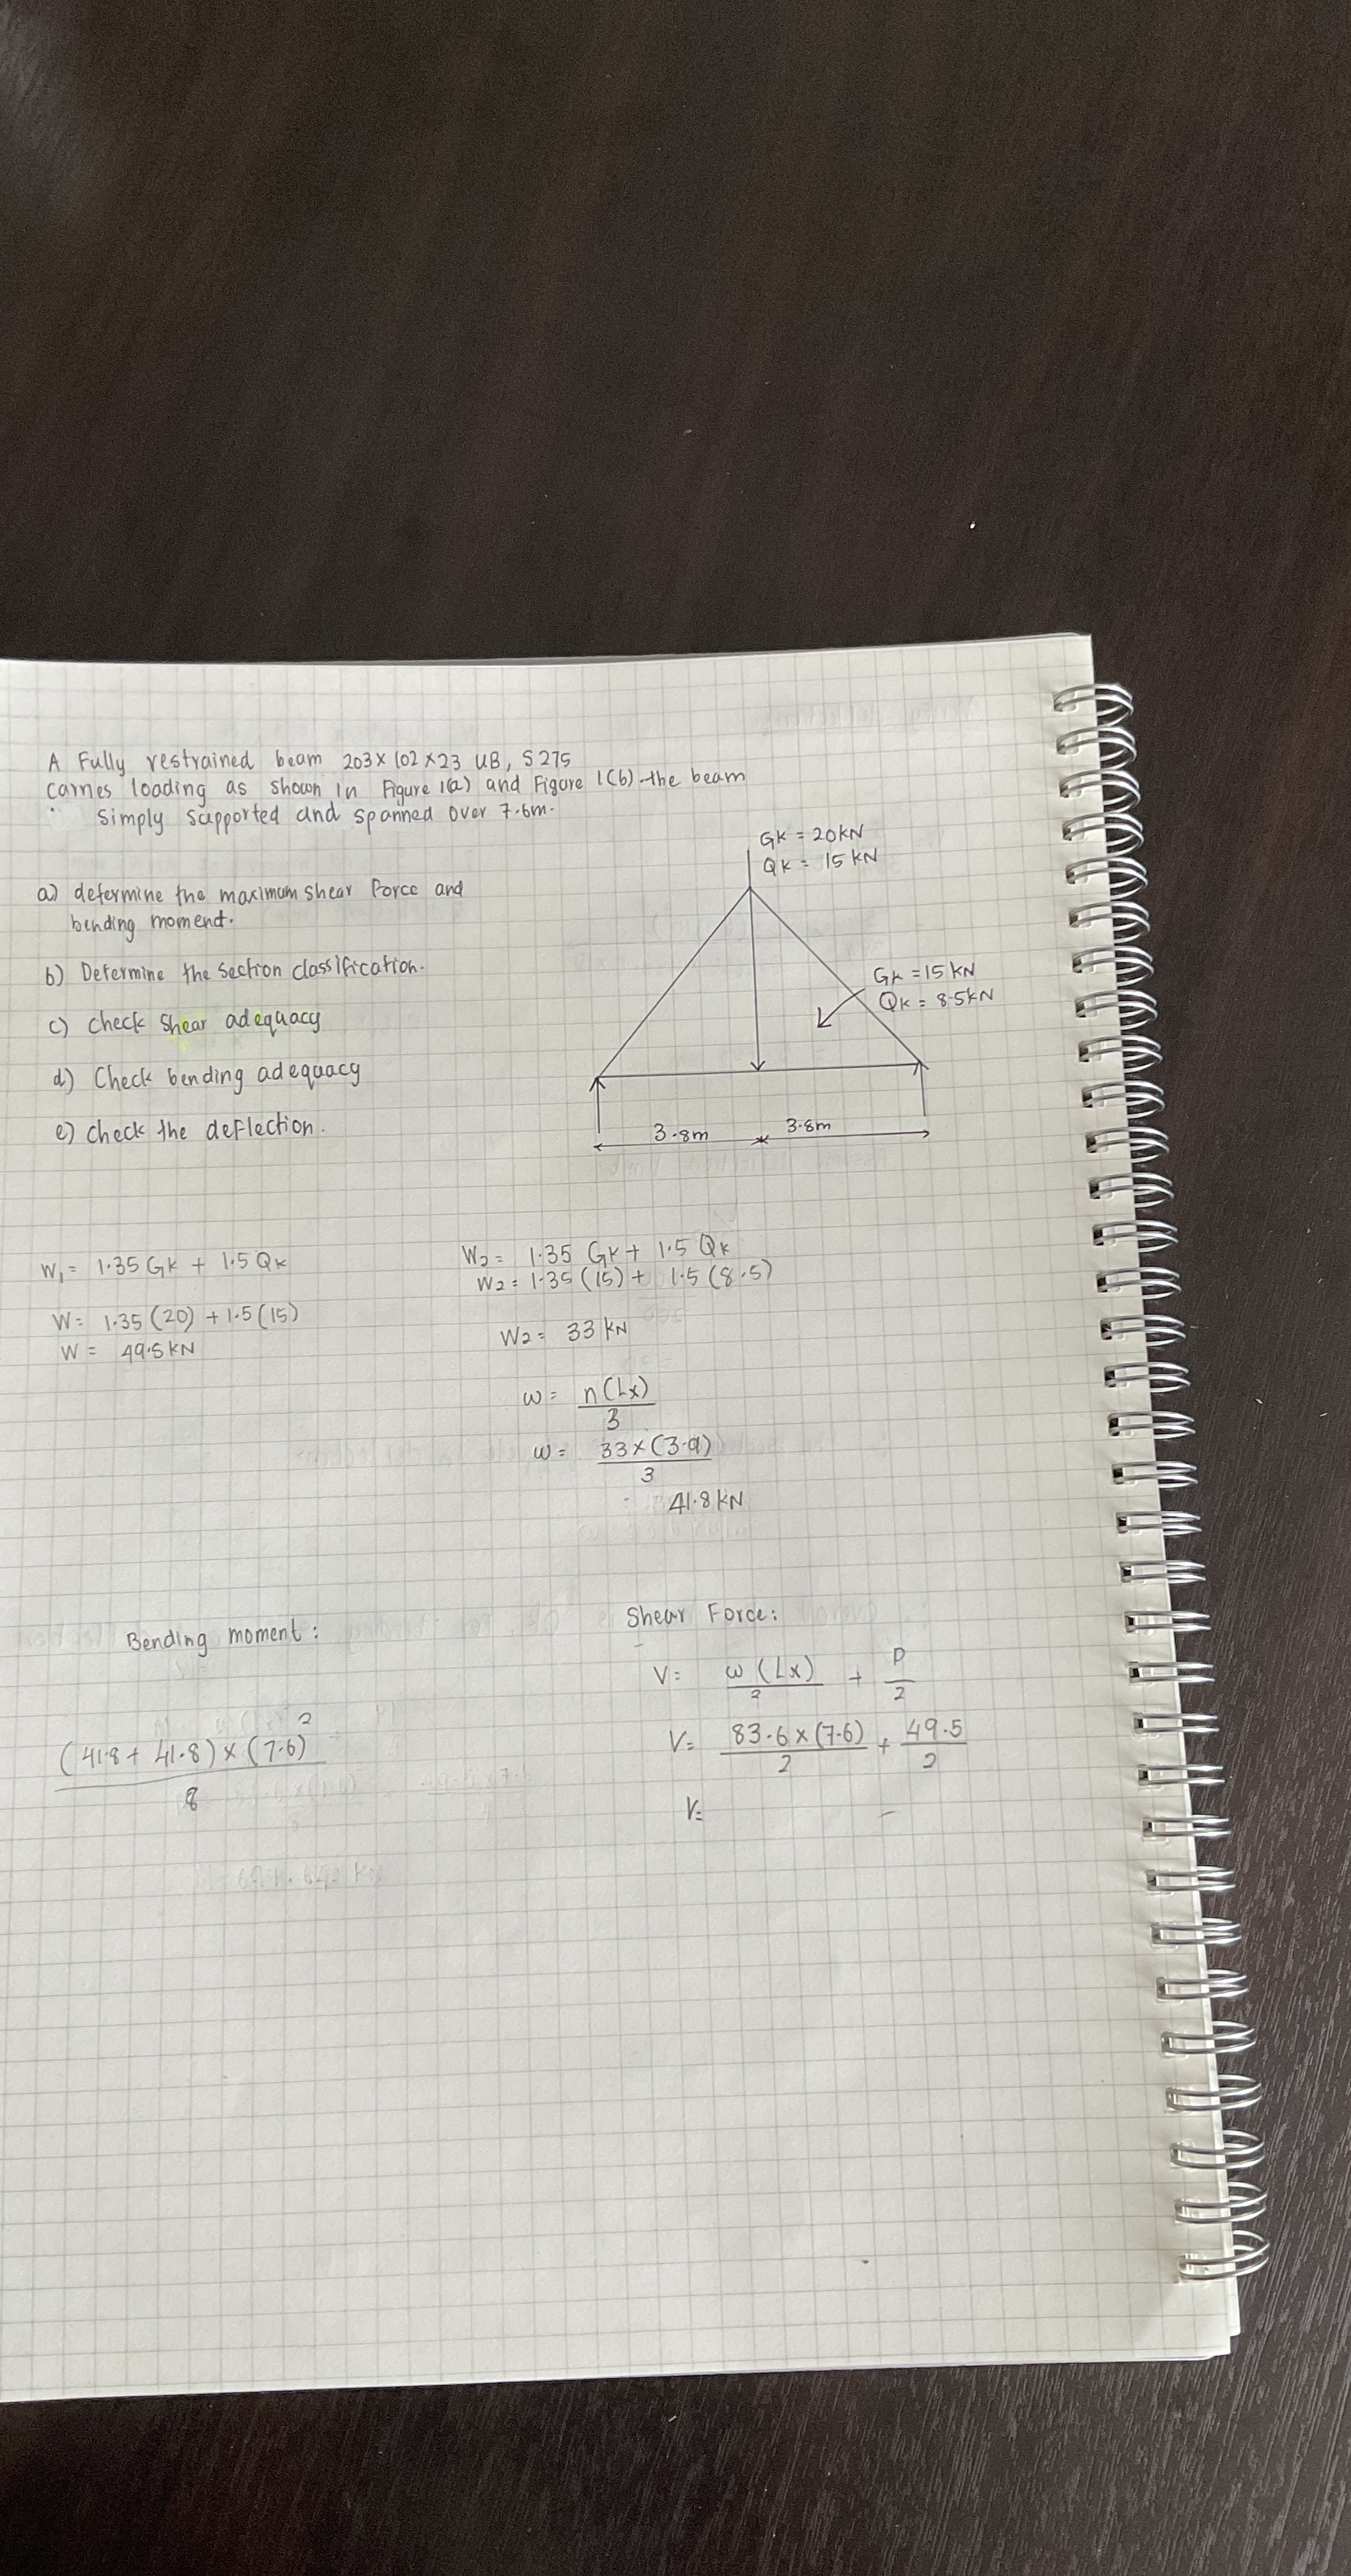 A Fully restrained beam 203 x 102 x 23 UB, S275
carries loading as shown in Figure 1(a) and Figure 1(b) the beam
simply supported and spanned over 7.6m.
GK = 20KN
QK = 15KN
a) determine the maximum shear force and
bending moment.
b) Determine the section classification.
GK = 15KN
QK = 8.5KN
c) check shear adequacy
d) Check bending adequacy
e) check the deflection.
3.8m 3.8m
W₁ = 1.35 GK + 1.5 QK
W = 1.35(20) + 1.5(15)
W = 49.5KN
W₂ = 1.35 GK + 1.5 QK
W₂ = 1.35(15) + 1.5(8.5)
W₂ = 33 KN
ω = n(Lx)/3
ω = 33x(3.9)/3
41.8KN
Bending moment:
(41.8 + 41.8) x (7.6)²/8
Shear Force:
V = ω(Lx)/2 + P/2
V = 83.6x(7.6)/2 + 49.5/2
V =